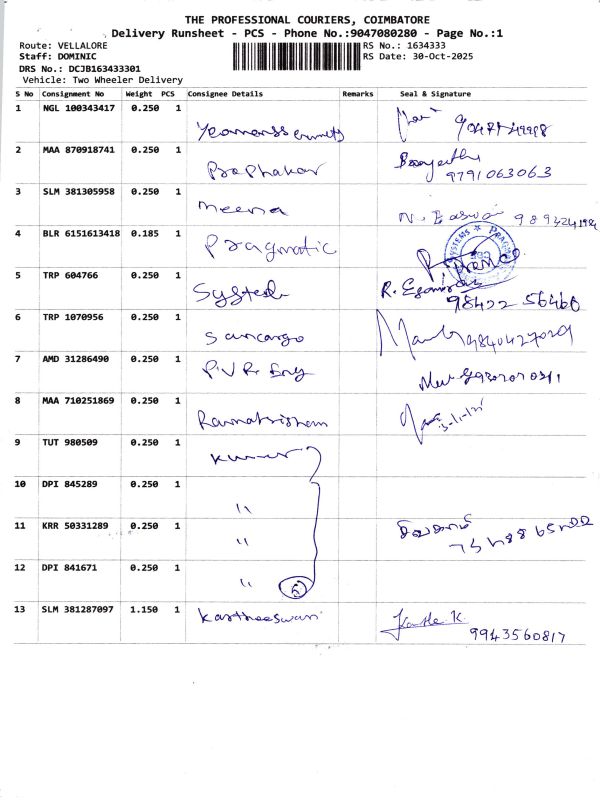 THE PROFESSIONAL COURIERS, COIMBATORE
Delivery Runsheet - PCS - Phone No.:9047080280 - Page No.:1
Route: VELLALORE
RS No.: 1634333
Staff: DOMINIC
RS Date: 30-Oct-2025
DRS No.: DCJB163433301
Vehicle: Two Wheeler Delivery
S No Consignment No Weight PCS Consignee Details Remarks Seal & Signature
1 NGL 100343417 0.250 1
2 MAA 870918741 0.250 1 Prabhakar 9791063063
3 SLM 381305958 0.250 1 meena
4 BLR 6151613418 0.185 1 Pragmatic
5 TRP 604766 0.250 1 System 98422 56460
6 TRP 1070956 0.250 1 Sancargo
7 AMD 31286490 0.250 1 P.V.R. Eng
8 MAA 710251869 0.250 1 Ramakrishnan
9 TUT 980509 0.250 1 Kumar
10 DPI 845289 0.250 1 "
11 KRR 50331289 0.250 1 "
12 DPI 841671 0.250 1 "
13 SLM 381287097 1.150 1 Kartheeswari
9943560817